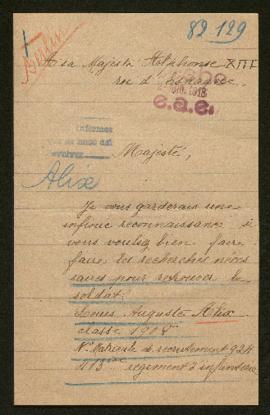 82 129
Berlin
A sa Majesté Alphonse XIII
roi d'Espagne
1918
e.a.e.
Informes
Majesté,
Alix
Je vous garderais une
infinie reconnaissance si
vous vouliez bien faire
faire des recherches néces
saires pour retrouver le
soldat:
Louis Auguste Alix
classe 1918
N° Matricule de recrutement 924
113ème régiment d'infanterie